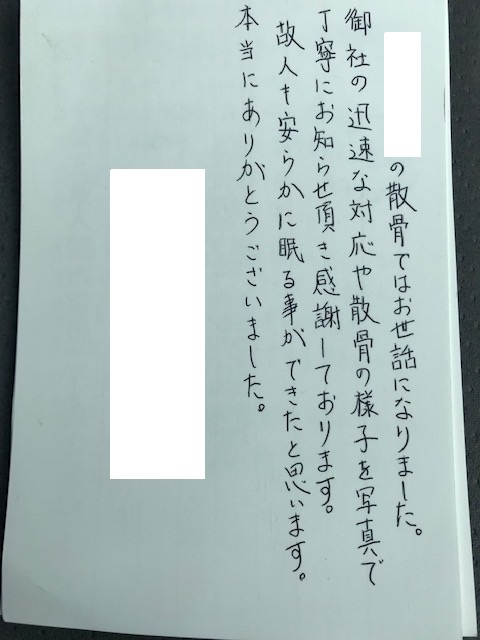 の散骨ではお世話になりました。
御社の迅速な対応や散骨の様子を写真で
丁寧にお知らせ頂き感謝しております。
故人も安らかに眠る事ができたと思います。
本当にありがとうございました。